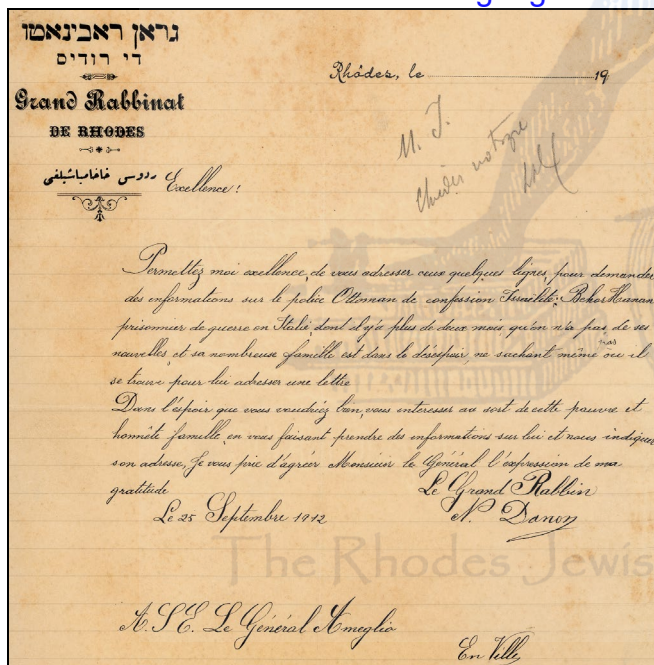 גראן ראבינאטו
די רודיס
Grand Rabbinat
DE RHODES
ردوس خاخامباشيلغى
Rhódes, le 19
M. I.
Excellence!
Permettez moi excellence, de vous adresser ceux quelques lignes, pour demander
des informations sur le police Ottoman de confession Israélite: Behor Hanan
prisonnier de guerre en Italie, dont il y a plus de deux mois qu'on n'a pas de ses
nouvelles, et sa nombreuse famille est dans le désespoir, ne sachant même pas où il
se trouve pour lui adresser une lettre
Dans l'éspoir que vous voudriéz bien, vous interesser au sort de cette pauvre et
honnête famille, en vous faisant prendre des informations sur lui et nous indiquer
son adresse, Je vous prie d'agréer Monsieur le Général l'expression de ma
gratitude
Le Grand Rabbin
Le 25 Septembre 1912
N. Danon
The Rhodes Jewis
A. S. E. Le Général Ameglio
En Ville